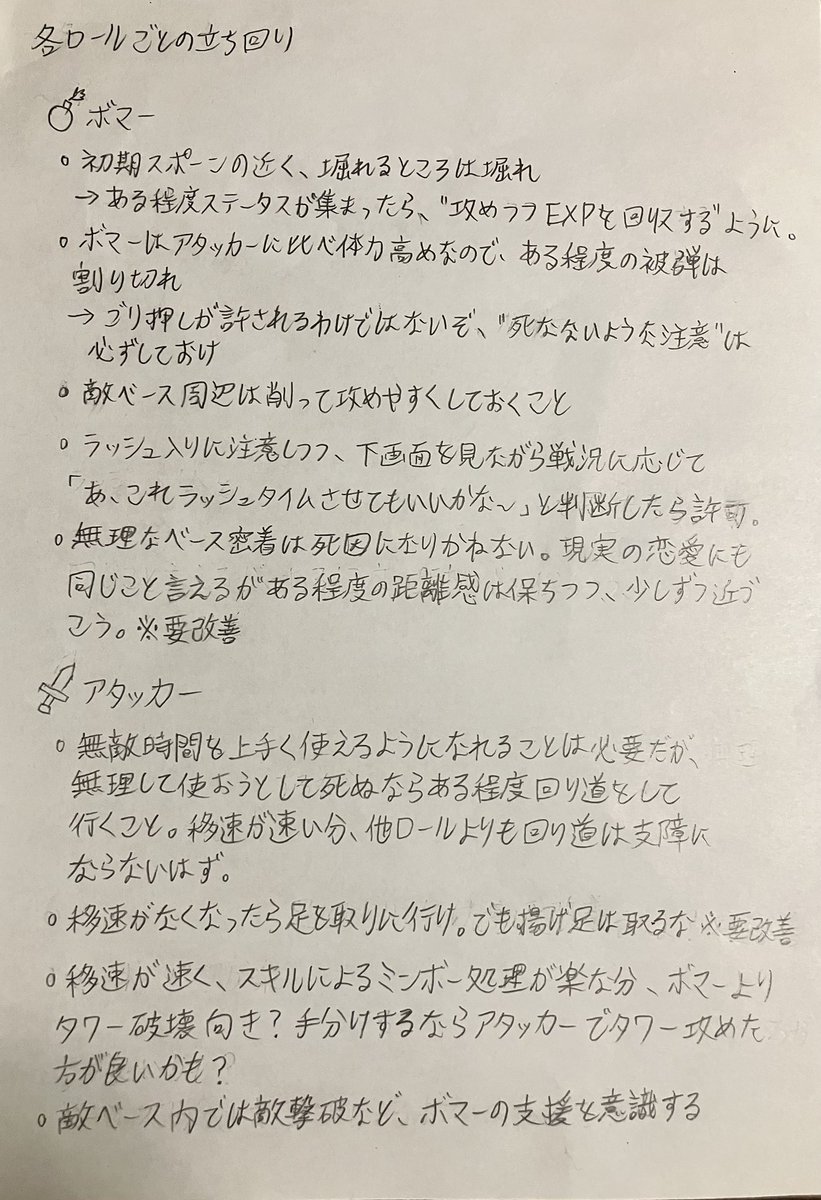 各ロールごとの立ち回り
ボマー
初期スポーンの近く、堀れるところは堀れ
→ある程度ステータスが集まったら、"攻めつつEXPを回収する"ように。
ボマーはアタッカーに比べ体力高めなので、ある程度の被弾は
割り切れ
→ゴリ押しが許されるわけではないぞ、"死なないような注意"は
必ずしておけ
敵ベース周辺は削って攻めやすくしておくこと
ラッシュ入りに注意しつつ、下画面を見ながら戦況に応じて
「あ、これラッシュタイムさせてもいいかな〜」と判断したら許可。
無理なベース密着は死因になりかねない。現実の恋愛にも
同じこと言えるがある程度の距離感は保ちつつ、少しずつ近づ
こう。※要改善
アタッカー
無敵時間を上手く使えるようになれることは必要だが、
無理して使おうとして死ぬならある程度回り道をして
行くこと。移速が速い分、他ロールよりも回り道は支障に
ならないはず。
移速がなくなったら足を取りに行け。でも揚げ足は取るな※要改善
移速が速く、スキルによるミンボー処理が楽な分、ボマーより
タワー破壊向き?手分けするならアタッカーでタワー攻めた
方が良いかも?
敵ベース内では敵撃破など、ボマーの支援を意識する